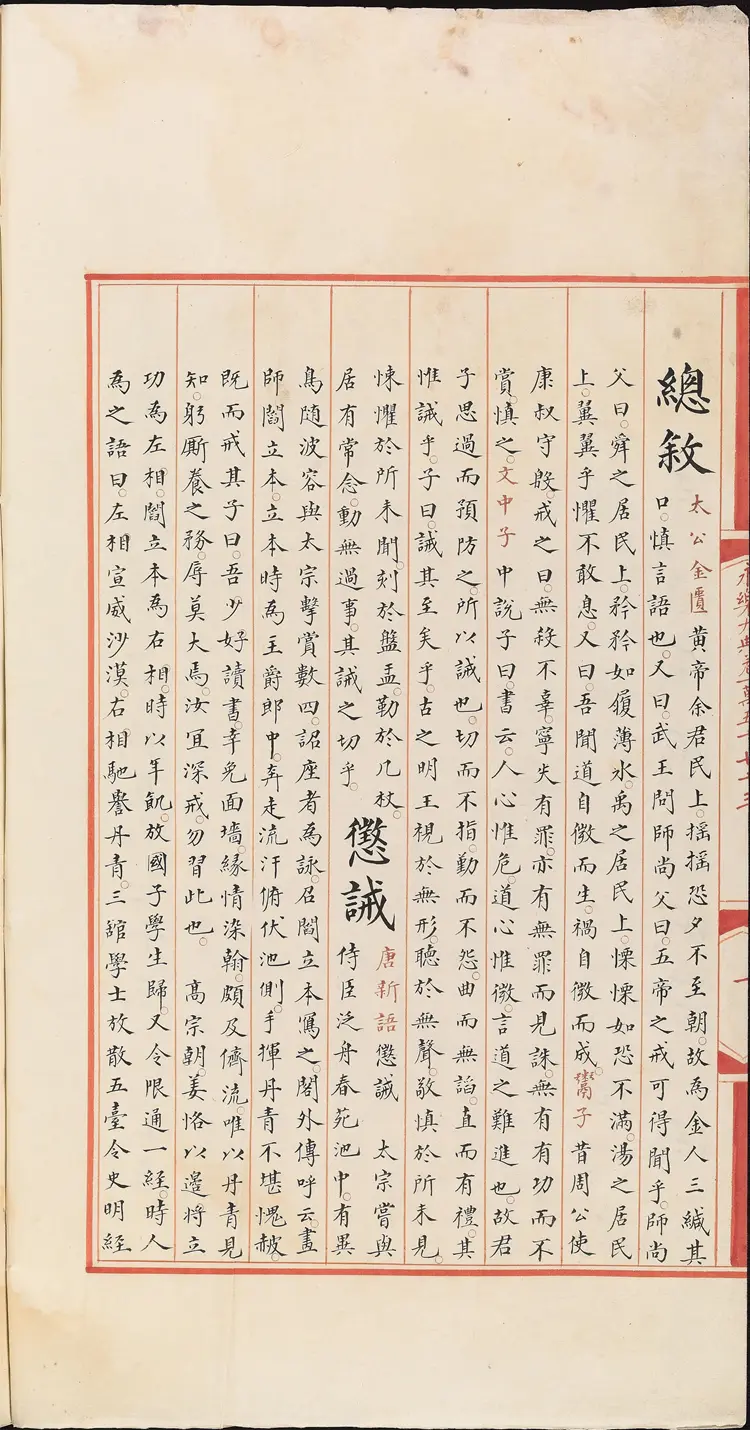 總敘
太公金匱黃帝余君民上。摇摇恐夕不至朝。故為金人三緘其
口。慎言語也。又曰。武王問師尚父曰。五帝之戒可得聞乎。師尚
父曰。舜之居民上。矜矜如履薄氷。禹之居民上。慄慄如恐不滿。湯之居民
上。翼翼乎懼不敢息。又曰。吾聞道自微而生。禍自微而成。鬻子昔周公使
康叔守殷。戒之曰。無殺不辜。寧失有罪。亦有無罪而見誅。無有有功而不
賞。慎之。文中子中說子曰。書云。人心惟危。道心惟微。言道之難進也。故君
子思過而預防之。所以誡也。切而不指。勤而不怨。曲而無謟。直而有禮。其
惟誡乎。子曰。誡其至矣乎。古之明王視於無形。聽於無聲。敬慎於所未見。
悚懼於所未聞。刻於盤盂。勒於几杖。
居有常念。動無過事。其誡之切乎。
懲誡
唐新語懲誡 太宗嘗與
侍臣泛舟春苑池中。有異
鳥随波容與太宗擊賞數四。詔座者為詠。召閻立本寫之。閣外傳呼云。畫
師閻立本。立本時為主爵郎中。奔走流汗俯伏池側。手揮丹青不堪愧赧。
既而戒其子曰。吾少好讀書。幸免面墻。緣情染翰。頗及儕流。唯以丹青見
知。躬厮養之務。辱莫大焉。汝宜深戒。勿習此也。 高宗朝。姜恪以邊將立
功為左相。閻立本為右相。時以年飢。放國子學生歸。又令限通一經。時人
為之語曰。左相宣威沙漠。右相馳譽丹青。三館學士放散五臺令史明經